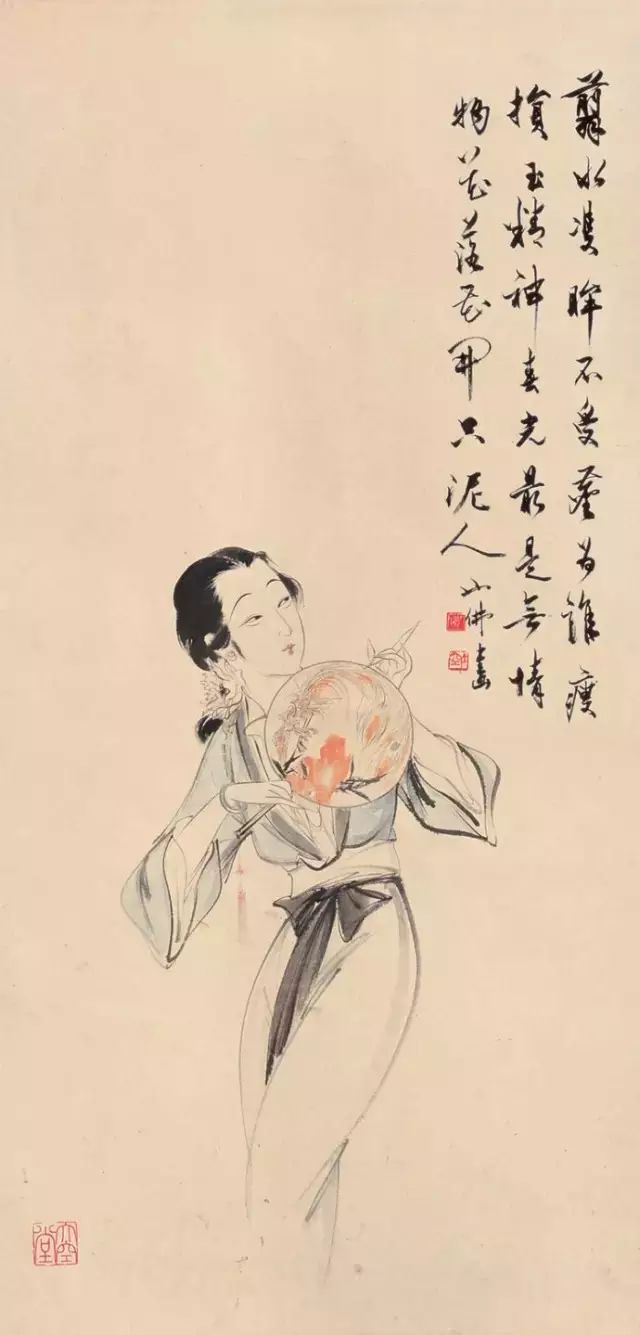 翦水凝眸不受塵為誰瘦
損玉精神春光最是無情
物花落花開只泥人 小佛畫